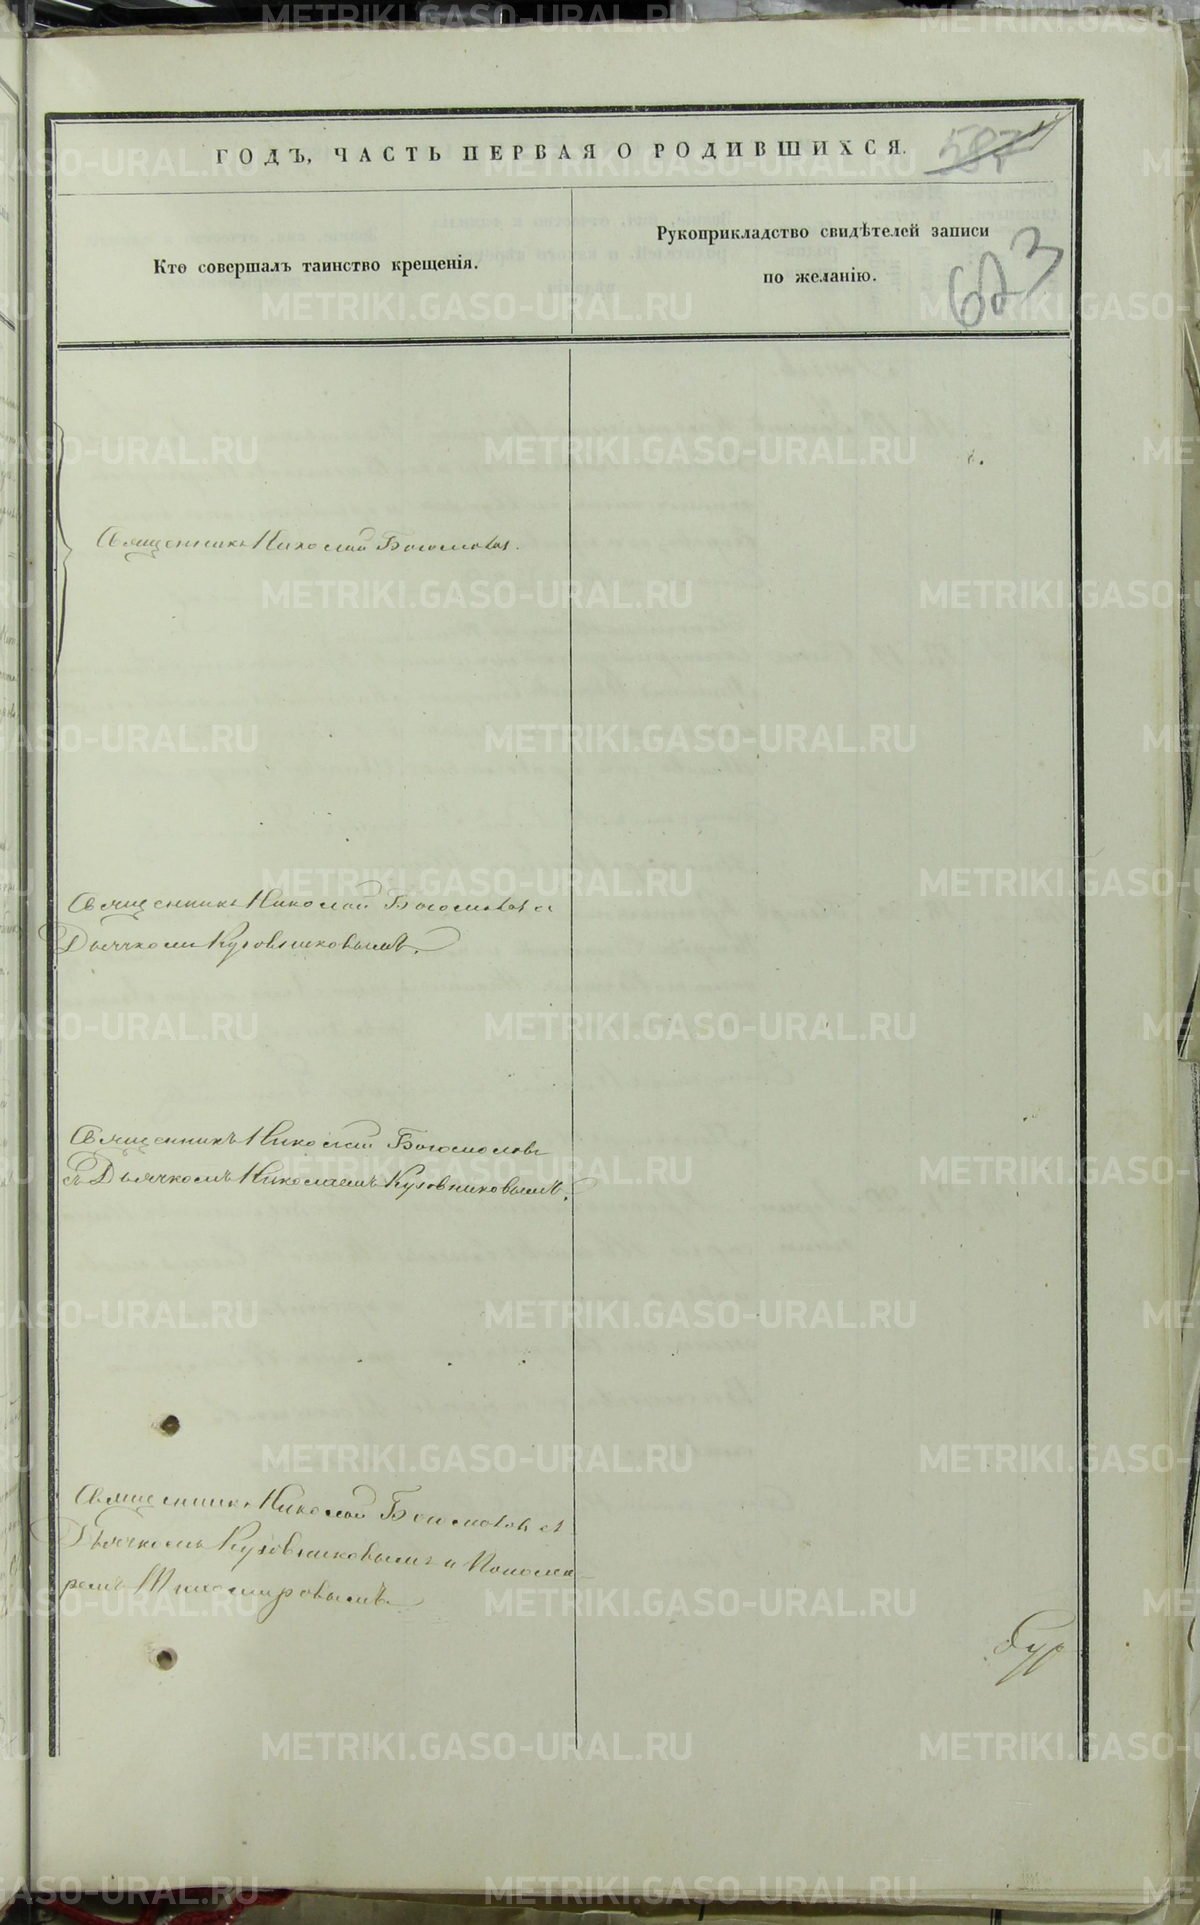 ГОДЪ, ЧАСТЬ ПЕРВАЯ О РОДИВШИХСЯ.
623
Кто совершалъ таинство крещенія.
Рукоприкладство свидѣтелей записи
по желанію.
Священникъ Николай Богомоловъ.
Священникъ Николай Богомоловъ съ
Дьячкомъ Кузовниковымъ.
Священникъ Николай Богомоловъ
съ Дьячкомъ Николаемъ Кузовниковымъ.
Священникъ Николай Богомоловъ съ
Дьячкомъ Кузовниковымъ и Понома-
ремъ Тихомировымъ.
METRIKI.GASO-URAL.RU